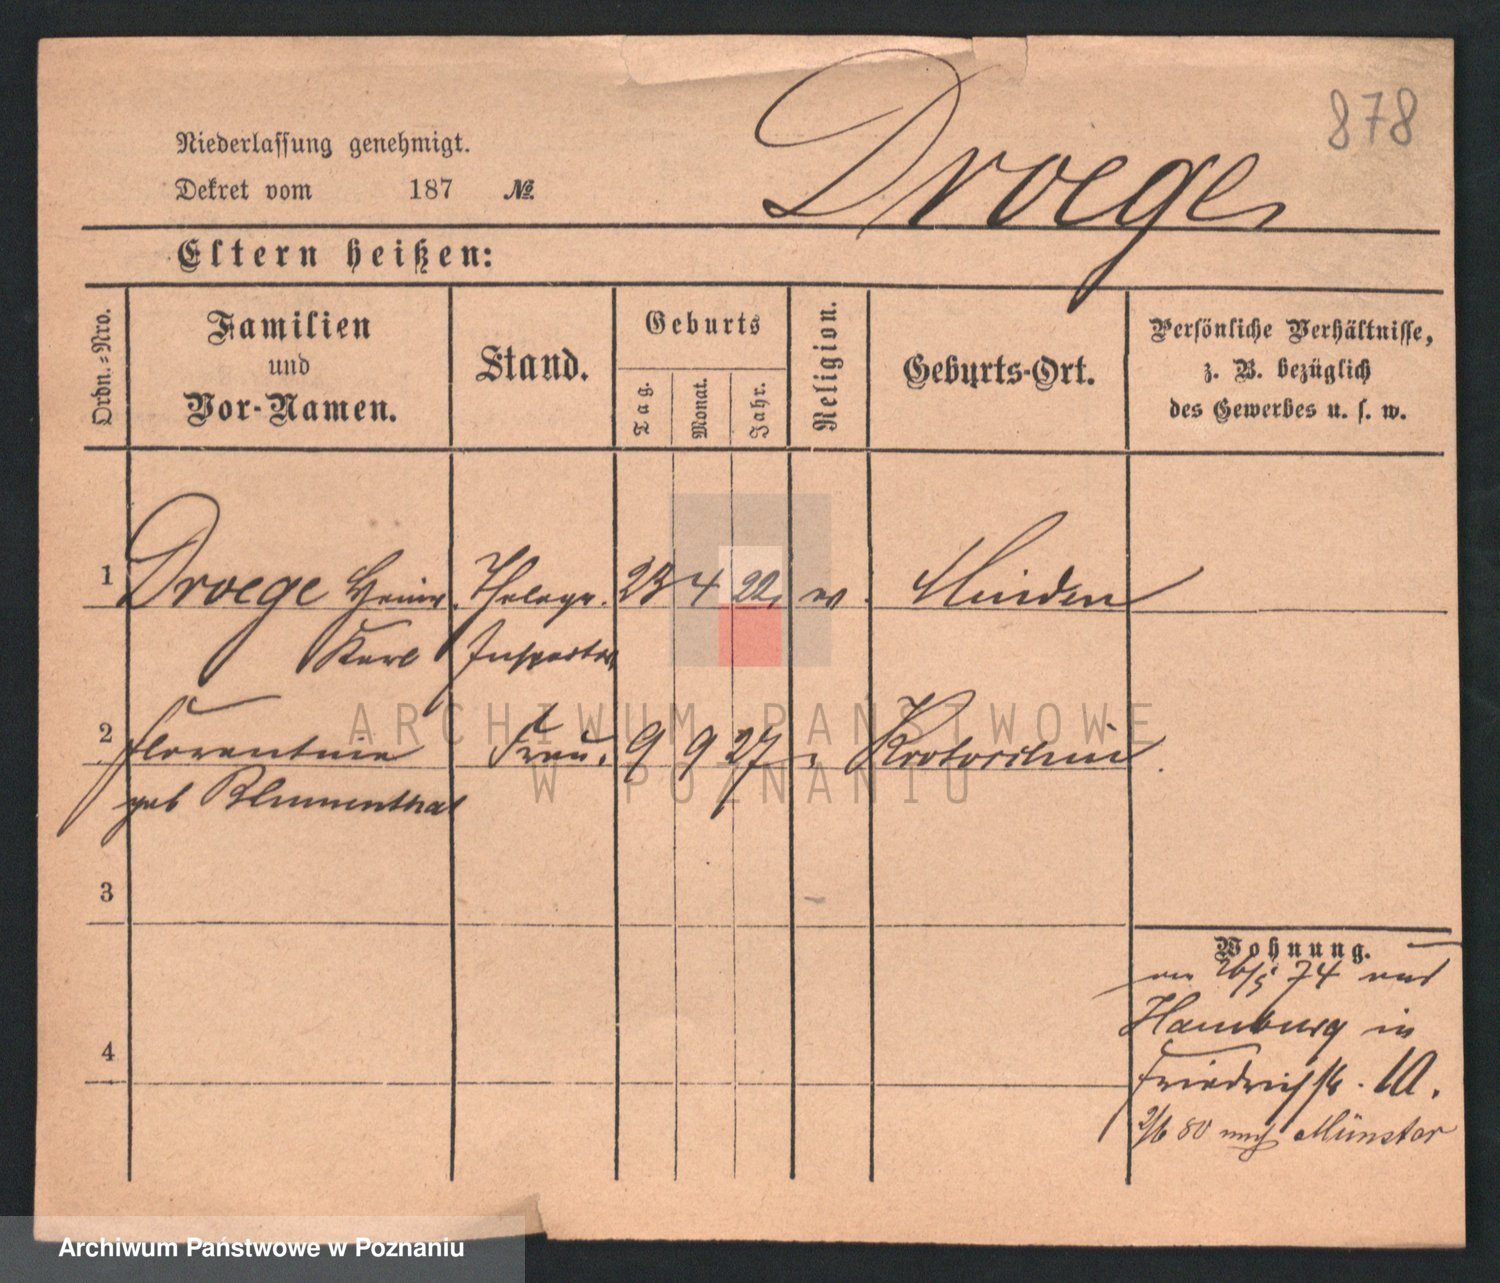 878
Droege
Niederlassung genehmigt.
Dekret vom 187 №.
Eltern heißen:
Ordn.=Nro.
Familien
und
Vor-Namen.
Stand.
Geburts
Tag.
Monat.
Jahr.
Religion.
Geburts-Ort.
Persönliche Verhältnisse,
z. B. bezüglich
des Gewerbes u. s. w.
1 Droege Heinr. Telegr. 23 4 22 Minden
Karl Inspector
2 Florentine Frau. 9 9 27 Krotoschin
geb Blumenthal
3
4
Wohnung.
26/5 74 aus
Hamburg in
Friedrichstr. 10.
2/6 80 nach Münster
ARCHIWUM PAŃSTWOWE
W POZNANIU
Archiwum Państwowe w Poznaniu